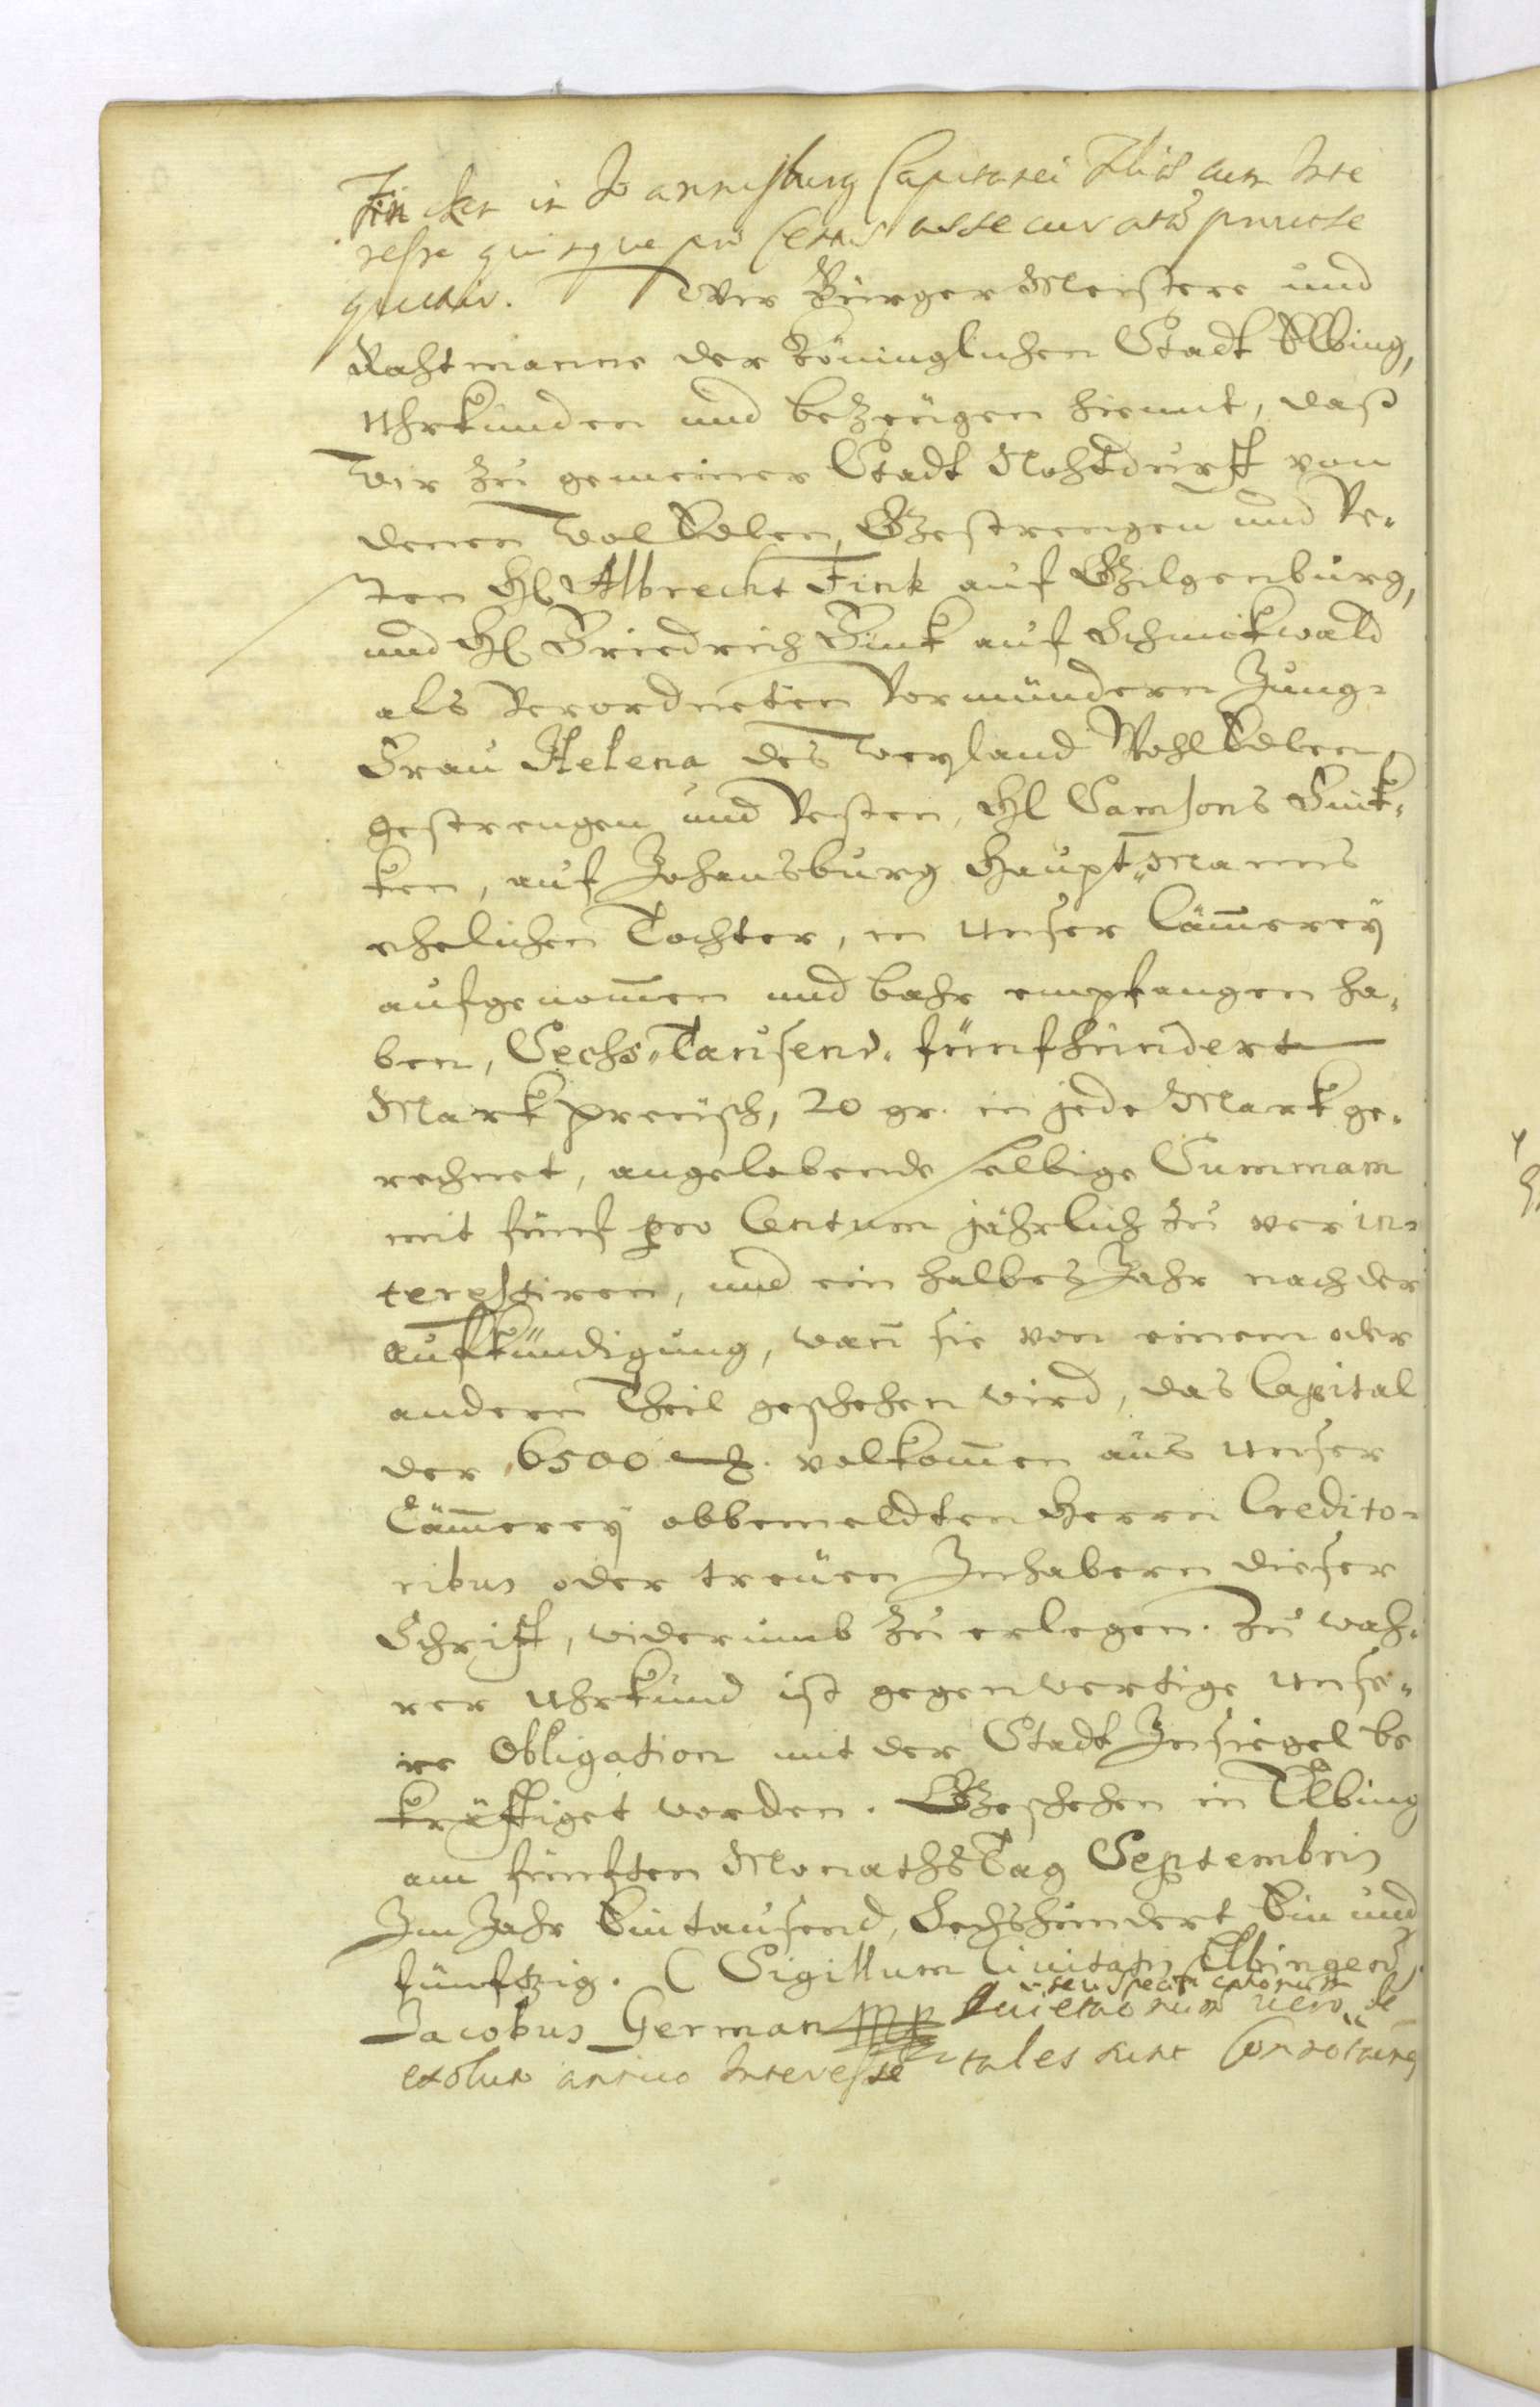 Fincken in Joannisburg Capitanei filiae cum Inte
resse quinque pro Centum assecuratos
 Wir BürgerMeistere und
Rahtmanne der Königlichen Stadt Elbing,
Uhrkunden und bezeugen hiemit, daß
Wir zu gemeiner Stadt Nohtdurfft von
denen WolEdlen, Gestrengen und Ve-
sten Hl Albrecht Fink auf Gilgenburg,
und Hl Friedrich Fink auf Schmikwald
als Verordneten Vormündern Jung-
Frau Helena des Weyland WohlEdlen
gestrengen und Vesten, Hl Samsons Fink-
ken, auf Johansburg Haupt-Manns
ehelichen Tochter, in unser Cämmerey
aufgenom̄en und bahr empfangen ha-
ben, Sechs-Tausend-fünfhundert
Mark preusch, 20 gr. in jede Mark ge-
rechnet, angelobende selbige Summam
mit fünf pro Centum jährlich zu verin-
teressiren, und ein halbes Jahr nach der
Aufkündigung, wañ sie von einem oder
andern Theil geschehen wird, das Capital
der 6500 volkom̄en aus unser
Cäm̄erey obbemeldten Herrn Credito-
ribus oder treuen Inhabern dieser
Schrifft, widerumb zu erlegen. Zu wah-
rer Uhrkund ist gegenwertige unse-
re Obligation mit der Stadt Insiegel be
kräfftiget worden. Geschehen in Elbing
am fünften MonathsTag Septembris
Im Jahr Eintausend, Sechshundert Ein und
fünftzig. (Sigillum Civitatis Elbingens)
Jacobus German mp Quietaonum vero de
exoluto annuo Interesse tales sunt